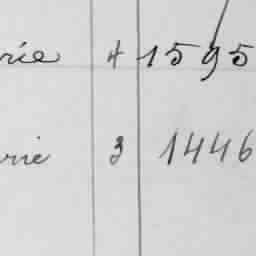 rie 4 1595
rie 3 1446